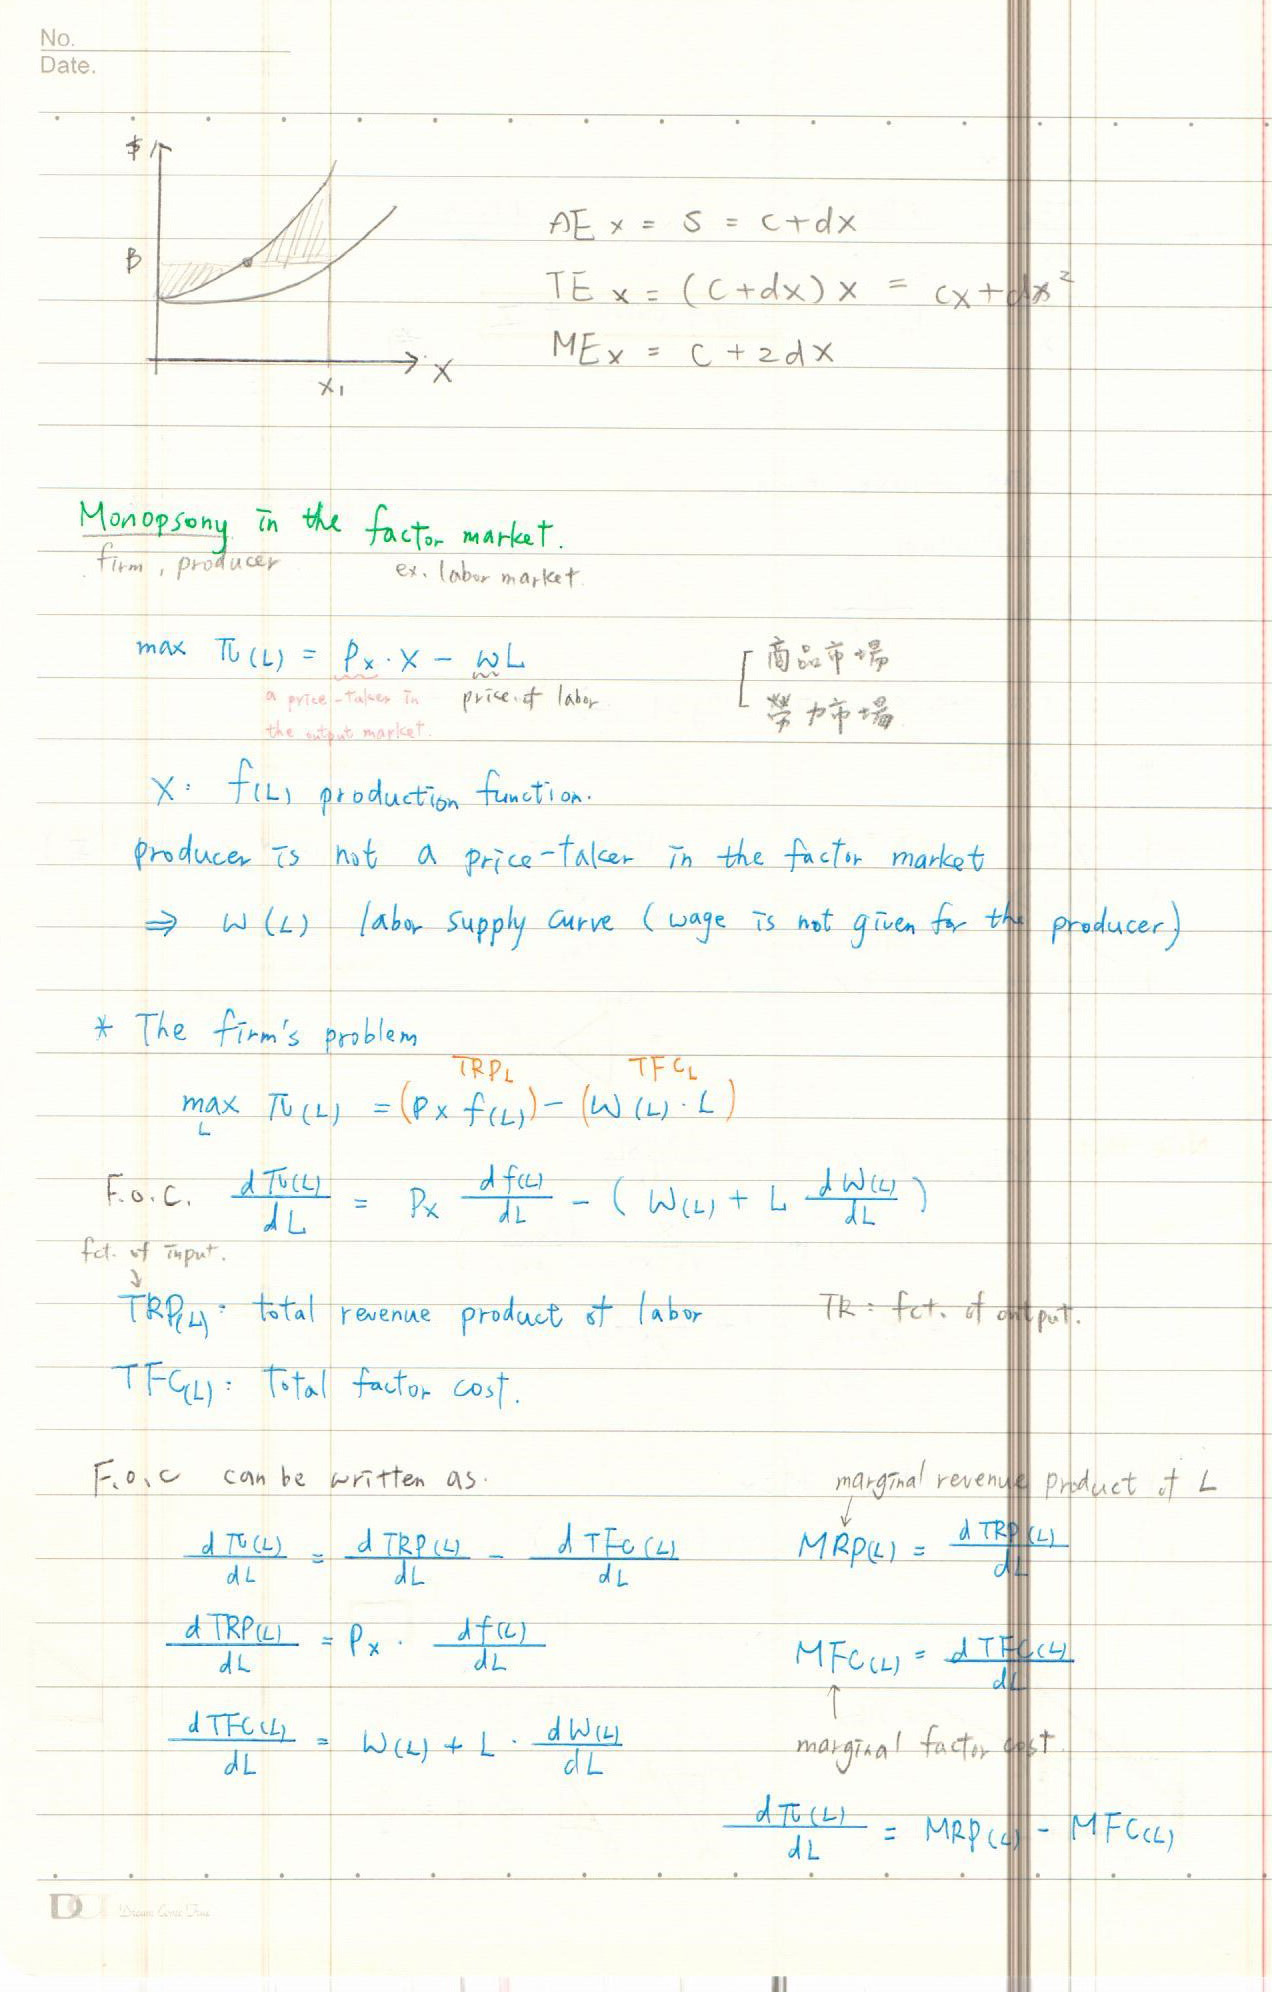 No.
Date.
$
B
X
X₁
AE x = S = C+dx
TE x = (C+dx) x = cx+dx²
MEx = C+2dx
Monopsony in the factor market.
firm, producer
ex. labor market.
max π(L) = Px·X - wL
a price-taker in the output market.
price of labor
商品市場
勞力市場
X: f(L) production function.
producer is not a price-taker in the factor market
⇒ W(L) labor supply curve (wage is not given for the producer)
* The firm's problem
TRP_L TFC_L
max_L π(L) = (Px f(L)) - (W(L)·L)
F.O.C. dπ(L)/dL = Px df(L)/dL - (W(L) + L dW(L)/dL)
fct. of input.
↓
TRP(L): total revenue product of labor
TR: fct. of output.
TFC(L): Total factor cost.
F.O.C can be written as.
marginal revenue product of L
↓
dπ(L)/dL = dTRP(L)/dL - dTFC(L)/dL
MRP(L) = dTRP(L)/dL
dTRP(L)/dL = Px · df(L)/dL
MFC(L) = dTFC(L)/dL
↑
marginal factor cost
dTFC(L)/dL = W(L) + L · dW(L)/dL
dπ(L)/dL = MRP(L) - MFC(L)
Dream Come True